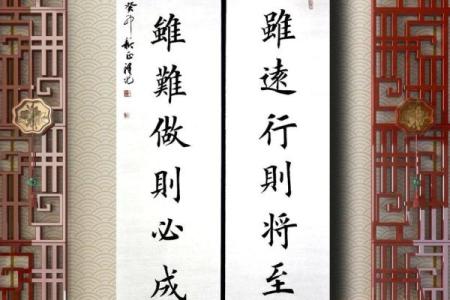 雖遠行則将至
雖難做則必成
癸卯